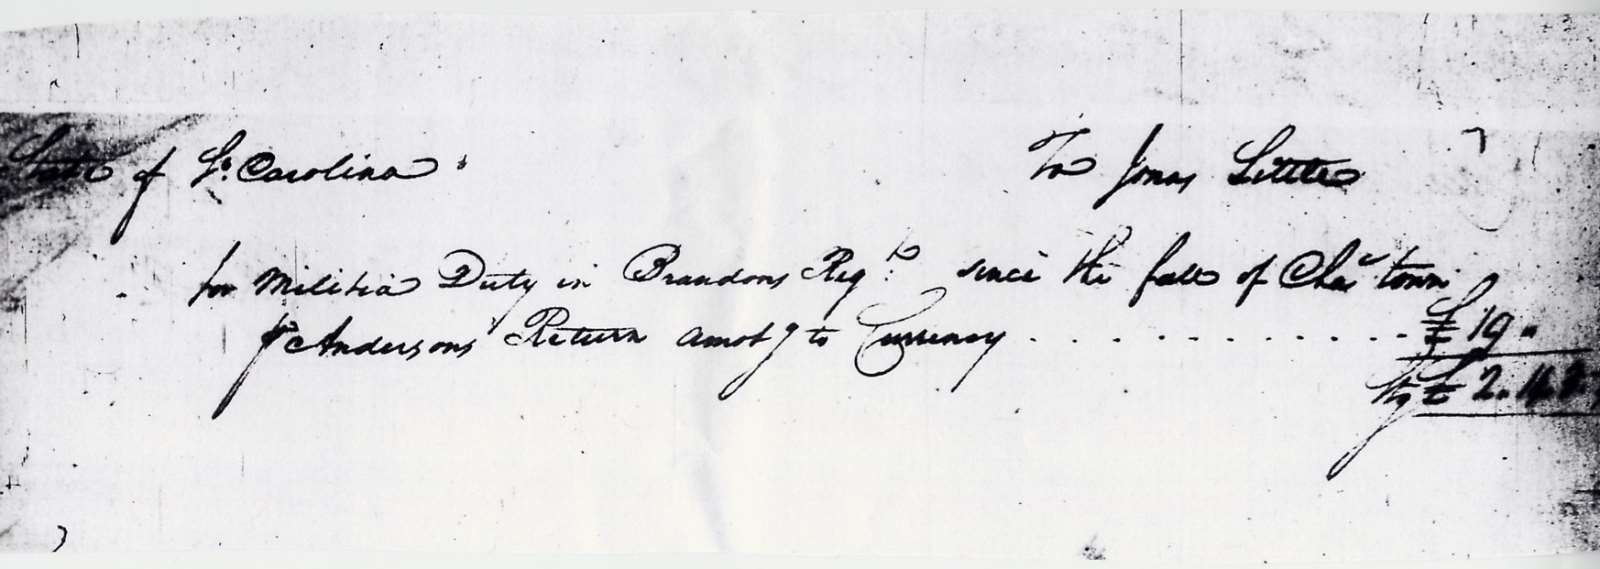 State of So. Carolina To Jonas Little
for Militia Duty in Brandons Regt. since the fall of Chas town
pr Andersons Return amotg to Currency . . . . . . . . . . £ 19 "
Stg £ 2. 14. 3